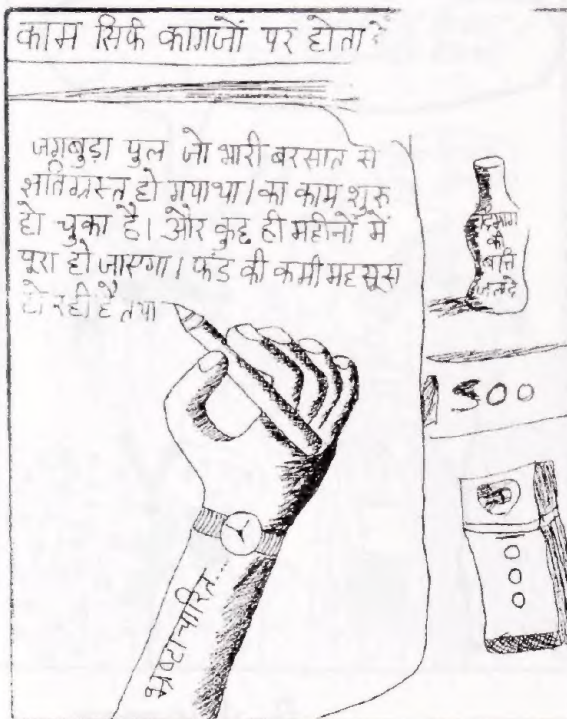 काम सिर्फ कागजों पर होता है
जगबुड़ा पुल जो भारी बरसात से
क्षतिग्रस्त हो गयाथा। का काम शुरू
हो चुका है। और कुछ ही महीनों में
पूरा हो जाएगा। फंड की कमी महसूस
हो रही है तथा
की
बत्ति
जलदे
500
भ्रष्टाचारित...